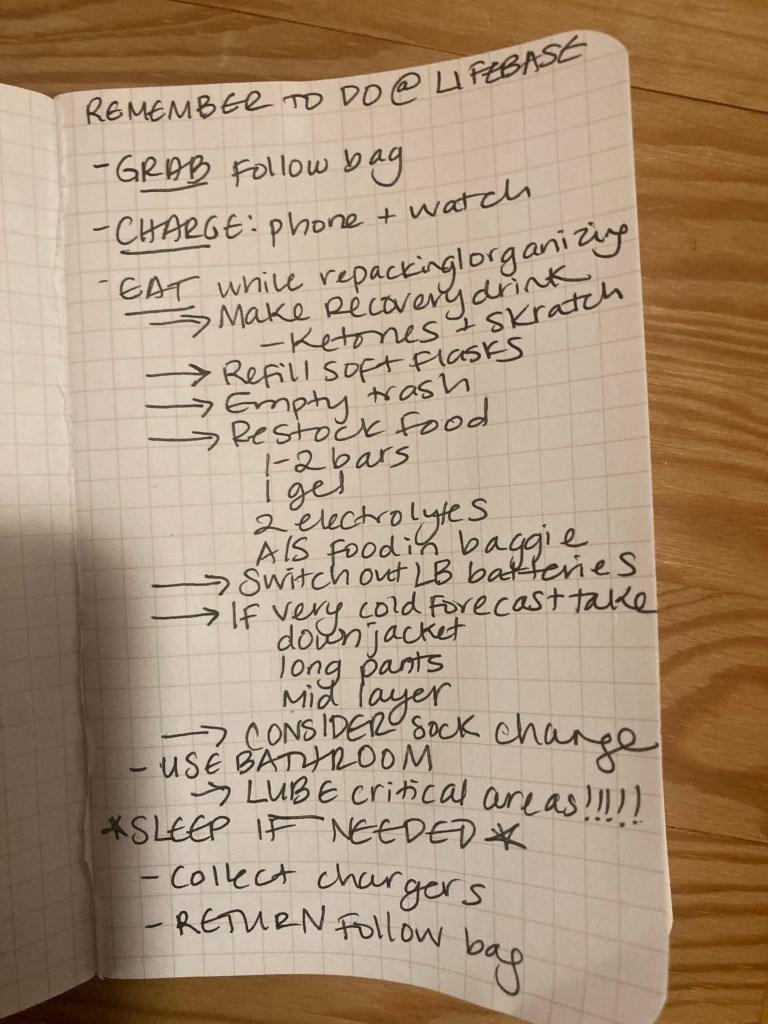 REMEMBER TO DO @ LIFEBASE
- GRAB Follow bag
- CHARGE: phone + watch
- EAT while repacking/organizing
→ Make Recovery drink
- Ketones + Skratch
→ Refill soft flasks
→ Empty trash
→ Restock food
1-2 bars
1 gel
2 electrolytes
A/S food in baggie
→ Switch out LB batteries
→ If very cold forecast take
down jacket
long pants
Mid layer
→ CONSIDER sock change
- USE BATHROOM
→ LUBE critical areas!!!!!
*SLEEP IF NEEDED*
- Collect chargers
- RETURN Follow bag